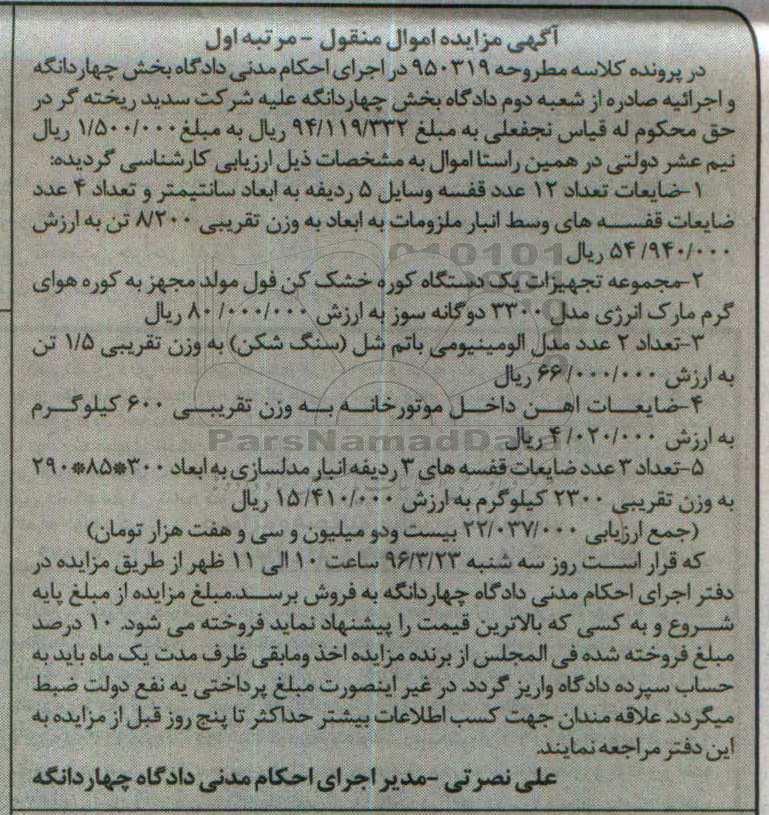 آگهی مزایده اموال منقول - مرتبه اول
در پرونده کلاسه مطروحه ۹۵۰۳۱۹ در اجرای احکام مدنی دادگاه بخش چهاردانگه
و اجرائیه صادره از شعبه دوم دادگاه بخش چهاردانگه علیه شرکت سدید ریخته گر در
حق محکوم له قیاس نجفعلی به مبلغ ۹۴/۱۱۹/۳۳۲ ریال به مبلغ ۱/۵۰۰/۰۰۰ ریال
نیم عشر دولتی در همین راستا اموال به مشخصات ذیل ارزیابی کارشناسی گردیده:
۱-ضایعات تعداد ۱۲ عدد قفسه وسایل ۵ ردیفه به ابعاد سانتیمتر و تعداد ۴ عدد
ضایعات قفسه های وسط انبار ملزومات به ابعاد به وزن تقریبی ۸/۲۰۰ تن به ارزش
۵۴/۹۴۰/۰۰۰ ریال
۲-مجموعه تجهیزات یک دستگاه کوره خشک کن فول مولد مجهز به کوره هوای
گرم مارک انرژی مدل ۳۳۰۰ دوگانه سوز به ارزش ۸۰/۰۰۰/۰۰۰ ریال
۳-تعداد ۲ عدد مدل الومینیومی باتم شل (سنگ شکن) به وزن تقریبی ۱/۵ تن
به ارزش ۶۶/۰۰۰/۰۰۰ ریال
۴-ضایعات اهن داخل موتورخانه به وزن تقریبی ۶۰۰ کیلوگرم
به ارزش ۴/۰۲۰/۰۰۰ ریال
ParsNamadData
۵-تعداد ۳ عدد ضایعات قفسه های ۳ ردیفه انبار مدلسازی به ابعاد ۳۰۰*۸۵*۲۹۰
به وزن تقریبی ۲۳۰۰ کیلوگرم به ارزش ۱۵/۴۱۰/۰۰۰ ریال
(جمع ارزیابی ۲۲/۰۳۷/۰۰۰ بیست ودو میلیون و سی و هفت هزار تومان)
که قرار است روز سه شنبه ۹۶/۳/۲۳ ساعت ۱۰ الی ۱۱ ظهر از طریق مزایده در
دفتر اجرای احکام مدنی دادگاه چهاردانگه به فروش برسد.مبلغ مزایده از مبلغ پایه
شروع و به کسی که بالاترین قیمت را پیشنهاد نماید فروخته می شود. ۱۰ درصد
مبلغ فروخته شده فی المجلس از برنده مزایده اخذ ومابقی ظرف مدت یک ماه باید به
حساب سپرده دادگاه واریز گردد. در غیر اینصورت مبلغ پرداختی یه نفع دولت ضبط
میگردد. علاقه مندان جهت کسب اطلاعات بیشتر حداکثر تا پنج روز قبل از مزایده به
این دفتر مراجعه نمایند.
علی نصرتی -مدیر اجرای احکام مدنی دادگاه چهاردانگه